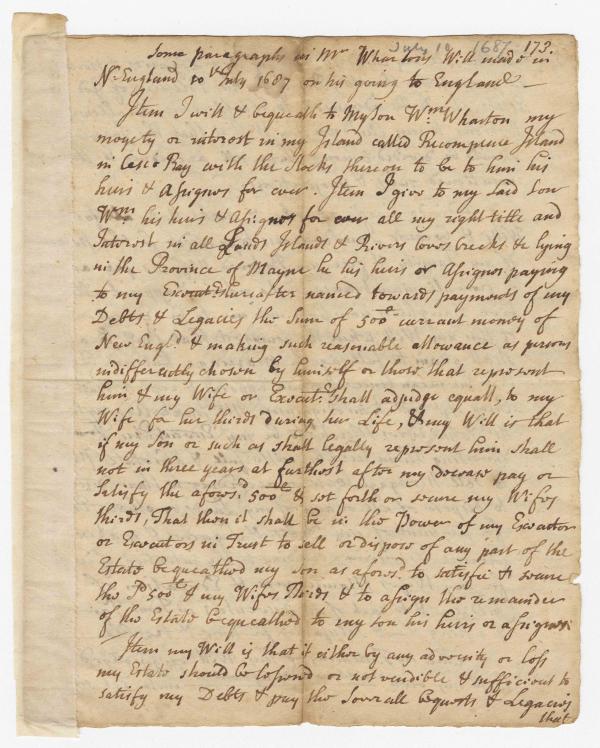 July 10 1687 173.
Some paragraphs in Mr Whartons Will made in
N: England 10th July 1687 on his going to England —
Item I will & bequeath to My Son Wm Wharton my
moyety or interest in my Island called Recompence Island
in Casco Bay with the Stocks thereon to be to him his
heirs & Assignes for ever. Item I give to my said Son
Wm his heirs & Assignes for ever all my right title and
Interest in all Lands Islands & Rivers Coves Creeks &c lying
in the Province of Mayne he his heirs or Assignes paying
to my Executrs hereafter named towards payments of my
Debts & Legacies the Sum of 500£ currant money of
New Engld & making such reasonable allowance as persons
indifferently chosen by himself or those that represent
him & my Wife or Executrs shall adjudge equall, to my
Wife for her thirds during her Life, & my Will is that
if my Son or such as shall legally represent him shall
not in three years at furthest after my decease pay or
Satisfy the aforesd 500£ & set forth or secure my Wifes
thirds, That then it shall be in the Power of my Executor
or Executors in Trust to sell or dispose of any part of the
Estate bequeathed my son as aforesd to satisfie & secure
the sd 500£ & my Wifes Thirds & to assign the remainder
of the Estate bequeathed to my son his heirs or assignes.
Item my Will is that if either by any adversity or Loss
my Estate should be lessened or not vendible & sufficient to
satisfy my Debts & pay the Severall bequests & Legacies
that